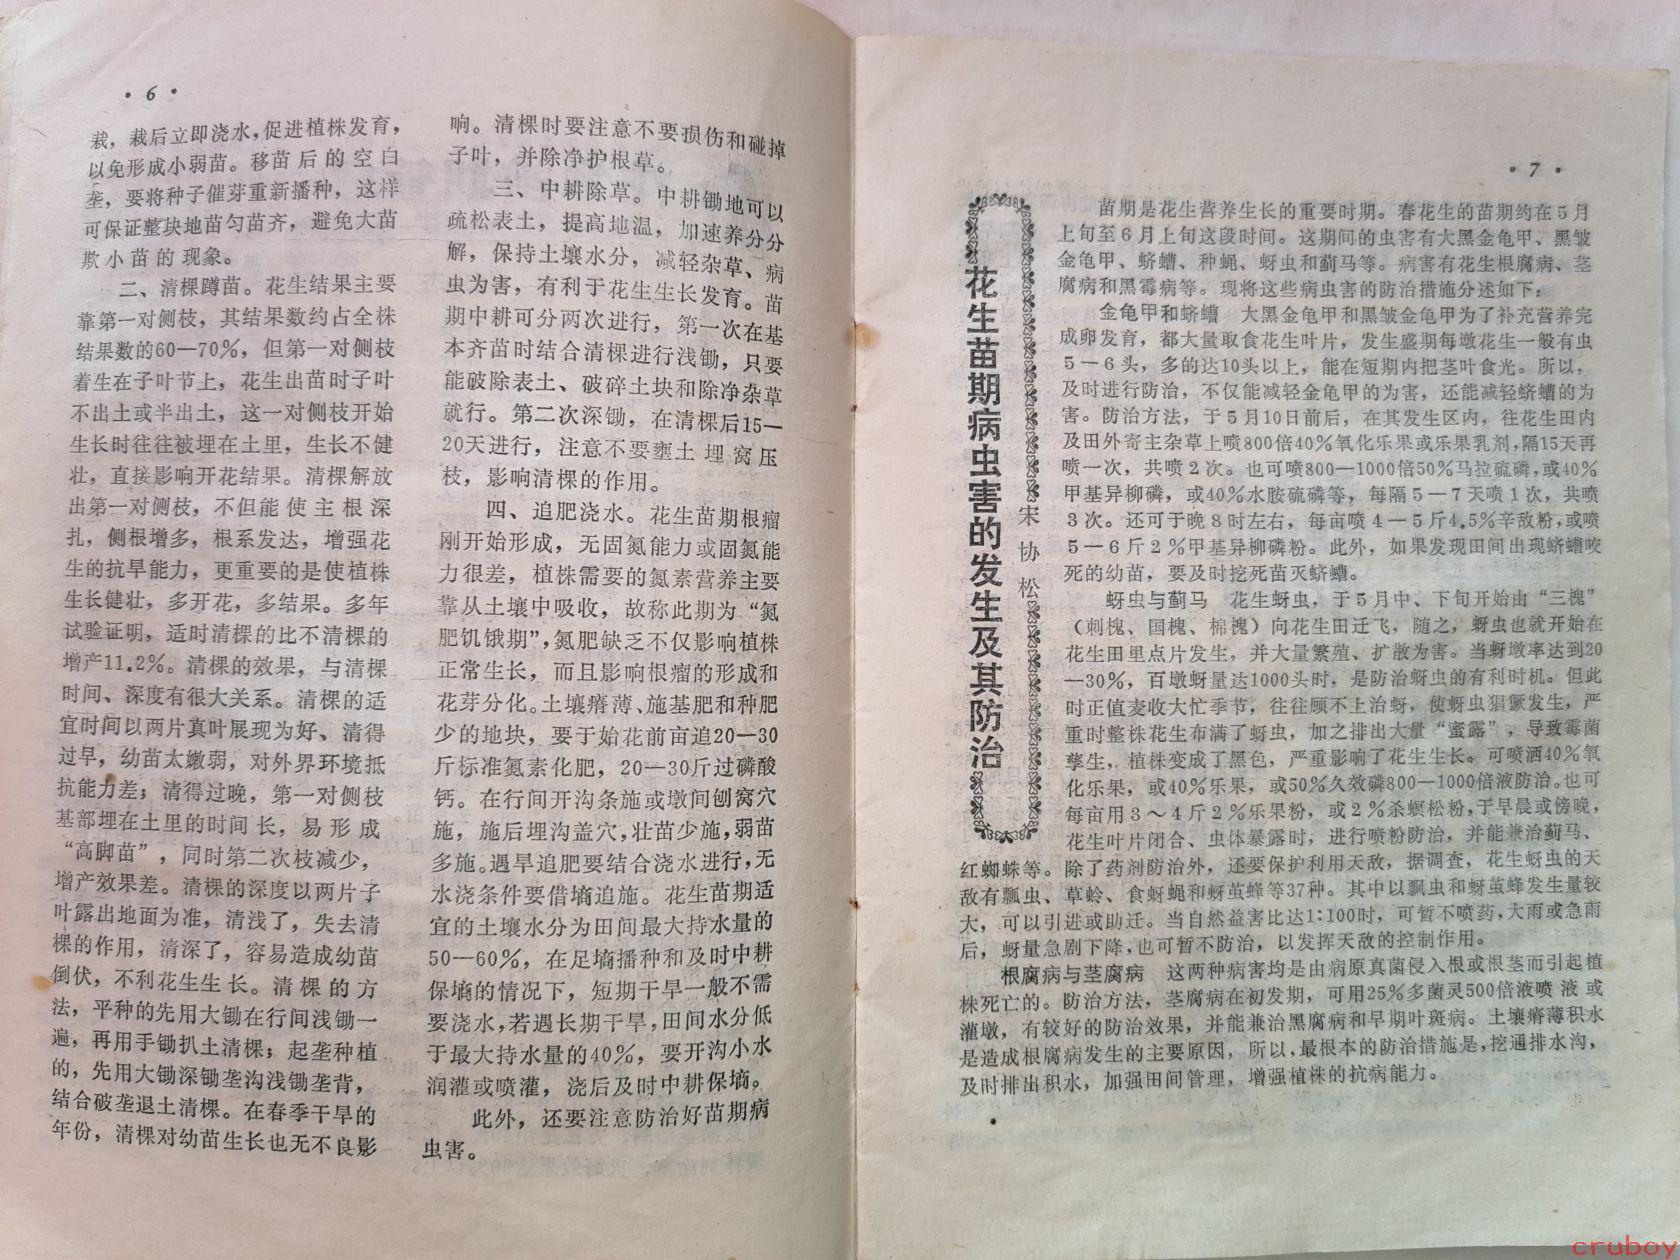 · 6 ·
栽，栽后立即浇水，促进植株发育，
以免形成小弱苗。移苗后的空白
垄，要将种子催芽重新播种，这样
可保证整块地苗匀苗齐，避免大苗
欺小苗的现象。
二、清棵蹲苗。花生结果主要
靠第一对侧枝，其结果数约占全株
结果数的60—70%，但第一对侧枝
着生在子叶节上，花生出苗时子叶
不出土或半出土，这一对侧枝开始
生长时往往被埋在土里，生长不健
壮，直接影响开花结果。清棵解放
出第一对侧枝，不但能使主根深
扎，侧根增多，根系发达，增强花
生的抗旱能力，更重要的是使植株
生长健壮，多开花，多结果。多年
试验证明，适时清棵的比不清棵的
增产11.2%。清棵的效果，与清棵
时间、深度有很大关系。清棵的适
宜时间以两片真叶展现为好、清得
过早，幼苗太嫩弱，对外界环境抵
抗能力差；清得过晚，第一对侧枝
基部埋在土里的时间长，易形成
“高脚苗”，同时第二次枝减少，
增产效果差。清棵的深度以两片子
叶露出地面为准，清浅了，失去清
棵的作用，清深了，容易造成幼苗
倒伏，不利花生生长。清棵的方
法，平种的先用大锄在行间浅锄一
遍，再用手锄扒土清棵；起垄种植
的，先用大锄深锄垄沟浅锄垄背，
结合破垄退土清棵。在春季干旱的
年份，清棵对幼苗生长也无不良影
响。清棵时要注意不要损伤和碰掉
子叶，并除净护根草。
三、中耕除草。中耕锄地可以
疏松表土，提高地温，加速养分分
解，保持土壤水分，减轻杂草、病
虫为害，有利于花生生长发育。苗
期中耕可分两次进行，第一次在基
本齐苗时结合清棵进行浅锄，只要
能破除表土、破碎土块和除净杂草
就行。第二次深锄，在清棵后15—
20天进行，注意不要壅土埋窝压
枝，影响清棵的作用。
四、追肥浇水。花生苗期根瘤
刚开始形成，无固氮能力或固氮能
力很差，植株需要的氮素营养主要
靠从土壤中吸收，故称此期为“氮
肥饥饿期”，氮肥缺乏不仅影响植株
正常生长，而且影响根瘤的形成和
花芽分化。土壤瘠薄、施基肥和种肥
少的地块，要于始花前亩追20—30
斤标准氮素化肥，20—30斤过磷酸
钙。在行间开沟条施或墩间刨窝穴
施，施后埋沟盖穴，壮苗少施，弱苗
多施。遇旱追肥要结合浇水进行，无
水浇条件要借墒追施。花生苗期适
宜的土壤水分为田间最大持水量的
50—60%，在足墒播种和及时中耕
保墒的情况下，短期干旱一般不需
要浇水，若遇长期干旱，田间水分低
于最大持水量的40%，要开沟小水
润灌或喷灌，浇后及时中耕保墒。
此外，还要注意防治好苗期病
虫害。
· 7 ·
花生苗期病虫害的发生及其防治
宋协松
苗期是花生营养生长的重要时期。春花生的苗期约在5月
上旬至6月上旬这段时间。这期间的虫害有大黑金龟甲、黑皱
金龟甲、蛴螬、种蝇、蚜虫和蓟马等。病害有花生根腐病、茎
腐病和黑霉病等。现将这些病虫害的防治措施分述如下：
金龟甲和蛴螬　大黑金龟甲和黑皱金龟甲为了补充营养完
成卵发育，都大量取食花生叶片，发生盛期每墩花生一般有虫
5—6头，多的达10头以上，能在短期内把茎叶食光。所以，
及时进行防治，不仅能减轻金龟甲的为害，还能减轻蛴螬的为
害。防治方法，于5月10日前后，在其发生区内，往花生田内
及田外寄主杂草上喷800倍40%氧化乐果或乐果乳剂，隔15天再
喷一次，共喷2次。也可喷800—1000倍50%马拉硫磷，或40%
甲基异柳磷，或40%水胺硫磷等，每隔5—7天喷1次，共喷
3次。还可于晚8时左右，每亩喷4—5斤4.5%辛敌粉，或喷
5—6斤2%甲基异柳磷粉。此外，如果发现田间出现蛴螬咬
死的幼苗，要及时挖死苗灭蛴螬。
蚜虫与蓟马　花生蚜虫，于5月中、下旬开始由“三槐”
（刺槐、国槐、棉槐）向花生田迁飞，随之，蚜虫也就开始在
花生田里点片发生，并大量繁殖、扩散为害。当蚜墩率达到20
—30%，百墩蚜量达1000头时，是防治蚜虫的有利时机。但此
时正值麦收大忙季节，往往顾不上治蚜，使蚜虫猖獗发生，严
重时整株花生布满了蚜虫，加之排出大量“蜜露”，导致霉菌
孳生，植株变成了黑色，严重影响了花生生长。可喷洒40%氧
化乐果，或40%乐果，或50%久效磷800—1000倍液防治。也可
每亩用3～4斤2%乐果粉，或2%杀螟松粉，于早晨或傍晚，
花生叶片闭合、虫体暴露时，进行喷粉防治，并能兼治蓟马、
红蜘蛛等。除了药剂防治外，还要保护利用天敌，据调查，花生蚜虫的天
敌有瓢虫、草蛉、食蚜蝇和蚜茧蜂等37种。其中以瓢虫和蚜茧蜂发生量较
大，可以引进或助迁。当自然益害比达1:100时，可暂不喷药，大雨或急雨
后，蚜量急剧下降，也可暂不防治，以发挥天敌的控制作用。
根腐病与茎腐病　这两种病害均是由病原真菌侵入根或根茎而引起植
株死亡的。防治方法，茎腐病在初发期，可用25%多菌灵500倍液喷液或
灌墩，有较好的防治效果，并能兼治黑腐病和早期叶斑病。土壤瘠薄积水
是造成根腐病发生的主要原因，所以，最根本的防治措施是，挖通排水沟，
及时排出积水，加强田间管理，增强植株的抗病能力。
cruboy